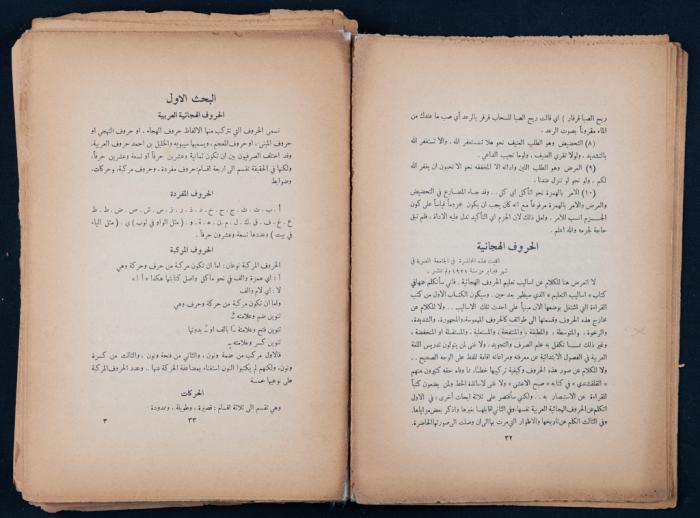 ريح الصبا قرقار ) اي قالت ريح الصبا للسحاب قرقر بالرعد أي صب ما عندك من
الماء مقروناً بصوت الرعد .
(٨) التحضيض وهو الطلب العنيف نحو هلا تستغفر الله ، والا تستغفر الله
بالتشديد ، ولولا تقري الضيف ، ولوما تجيب الداعي .
(٩) العرض وهو الطلب اللين واداته الا المخففه نحو الا تحبون ان يغفر الله
لكم . ولو نحو لو تنزل عندنا .
(١٠) الامر بالهمزة نحو أتأكل اي كل .. وقد جاء المضارع في التحضيض
والعرض والامر بالهمزة مرفوعاً مع انه كان يجب ان يكون مجزوماً قياساً على كون
الجزم انسب للامر . ولعل ذلك لان الجزم اي التأكيد تدل عليه الاداة ، فلم تبق
حاجة لجزمه والله اعلم .
الحروف الهجائية
القيت هذه المحاضرة في الجامعة المصرية في
شهر فبراير من سنة ١٩٢٨ ولم تنشر .
لا اتعرض هنا للكلام عن اساليب تعليم الحروف الهجائية . فاني سأتكلم عنها في
كتاب « اساليب التعليم » الذي سيظهر بعد حين . وسيكون الكتاب الاول من كتب
القراءة التي اشتغل بوضعها الآن مبنياً على احدث تلك الاساليب .. ولا للكلام عن
مخارج هذه الحروف وقسمتها الى طوائف كالحروف المهموسة والمجهورة ، والشديدة ،
والرخوة ، والمتوسطة ، والمطبقة ، والمنفتحة ، والمستعلية ، والمستفلة او المنخفضة ،
وغير ذلك مما تكفل به علم الصرف والتجويد . ولا غنى لمن يتولون تدريس اللغة
العربية في الفصول الابتدائية عن معرفته ومراعاته اقامة للفظ على الوجه الصحيح ..
ولا للكلام عن صور هذه الحروف وكيفية تركيبها خطاً ، مما وفاه حقه كثيرون منهم
« القلقشندي » في كتابه « صبح الاعشى » ، ولا غنى لاساتذة الخط ولمن يضعون كتباً
القراءة عن الاستبصار به .. ولكني سأقتصر على ثلاثة ابحاث أخرى : في الاول
اتكلم عن الحروف الهجائية العربية نفسها ، وفي الثاني اقابلها بغيرها واذكر بعض مزاياها ،
وفي الثالث اتكلم عن تاريخها والاطوار التي مرت بها الى ان وصلت الى صورتها الحاضرة .
٣٢
البحث الاول
الحروف الهجائية العربية
تسمى الحروف التي تتركب منها الالفاظ حروف الهجاء ، او حروف التهجي او
حروف المبنى ، او حروف المعجم ، ويسميها سيبويه والخليل بن احمد حروف العربية .
وقد اختلف الصرفيون بين ان تكون ثمانية وعشرين حرفاً او تسعة وعشرين حرفاً .
ولكنها في الحقيقة تقسم الى اربعة اقسام : حروف مفردة ، وحروف مركبة ، وحركات ،
وضوابط
الحروف المفردة
أ . ب . ت . ث . ج . ح . خ . د . ذ . ر . ز . س . ش . ص . ض . ط . ظ
ع . غ . ف . ق . ك . ل . م . ن . ه . ة . و . ( مثل الواو في ثوب ) ي . ( مثل الياء
في بيت ) وعددها تسعة وعشرون حرفاً .
الحروف المركبة
الحروف المركبة نوعان : اما ان تكون مركبة من حرف وحركة وهي
آ : اي همزة والف في نحو مآكل واصل كتابتها هكذا « أ ا »
لا : اي لام والف
واما ان تكون مركبة من حركة وحرف وهي
تنوين ضم وعلامته ـٌ
تنوين فتح وعلامته ـًا بالف او ـً بدونها
تنوين كسر وعلامته ـٍ
فالاول مركب من ضمة ونون ، والثاني من فتحة ونون ، والثالث من كسرة
ونون ، ولكنهم لم يكتبوا النون استغناء بمضاعفة الحركة عنها . وعدد الحروف المركبة
على نوعيها خمسة
الحركات
وهي تقسم الى ثلاثة اقسام : قصيرة ، وطويلة ، وممدودة
٣٣
٣